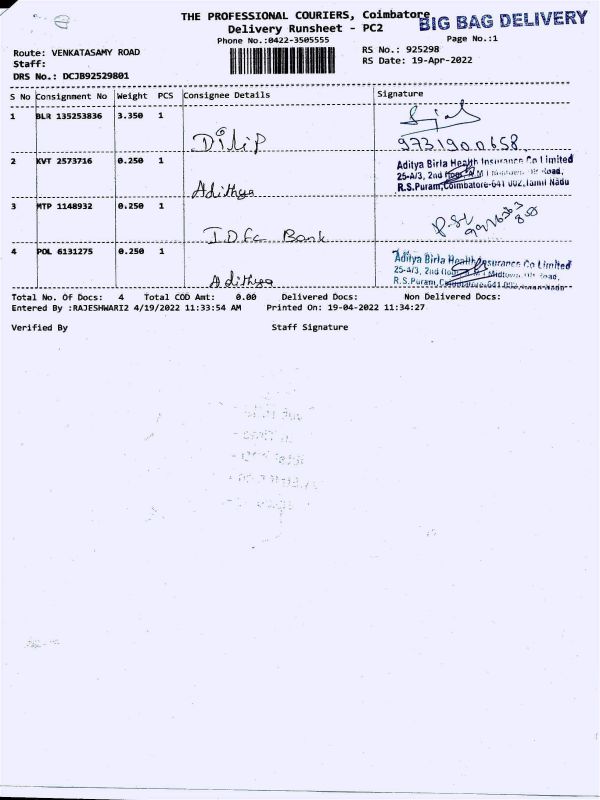 THE PROFESSIONAL COURIERS, Coimbatore
BIG BAG DELIVERY
Delivery Runsheet - PC2
Phone No.:0422-3505555
Page No.:1
Route: VENKATASAMY ROAD
RS No.: 925298
Staff:
RS Date: 19-Apr-2022
DRS No.: DCJB92529801
S No Consignment No Weight PCS Consignee Details Signature
1 BLR 135253836 3.350 1
Dilip 9731900658
2 KVT 2573716 0.250 1
Adithya
Aditya Birla Health Insurance Co Limited
25-A/3, 2nd floor, Road,
R.S.Puram, Coimbatore-641 002, Tamil Nadu
3 MTP 1148932 0.250 1
IDFC Bank
4 POL 6131275 0.250 1
Adithya
Aditya Birla Health Insurance Co Limited
25-A/3, 2nd floor, Road,
R.S.Puram, Coimbatore-641
Total No. Of Docs: 4 Total COD Amt: 0.00 Delivered Docs: Non Delivered Docs:
Entered By :RAJESHWARI2 4/19/2022 11:33:54 AM Printed On: 19-04-2022 11:34:27
Verified By Staff Signature